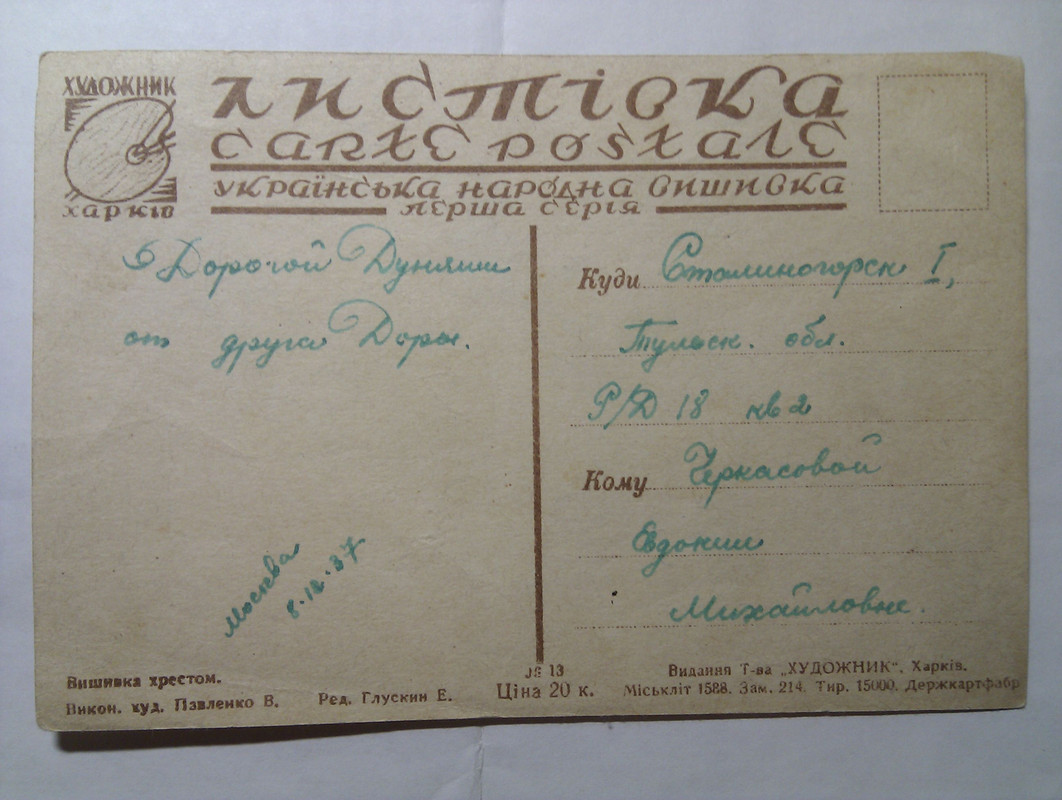 ХУДОЖНИК
ХАРКІВ
ЛИСТІВКА
CARTE POSTALE
УКРАЇНСЬКА НАРОДНА ВИШИВКА
ПЕРША СЕРІЯ
Дорогой Дуняши
от друга Доры.
Москва
8.12.37
Куди Сталиногорск I,
Тульск. обл.
Р/Д 18 кв 2
Кому Черкасовой
Евдокии
Михайловне.
Вишивка хрестом.
Викон. худ. Павленко В. Ред. Глускин Е.
№ 13
Ціна 20 к.
Видання Т-ва „ХУДОЖНИК“, Харків.
Міськліт 1588. Зам. 214. Тир. 15000. Держкартфабр